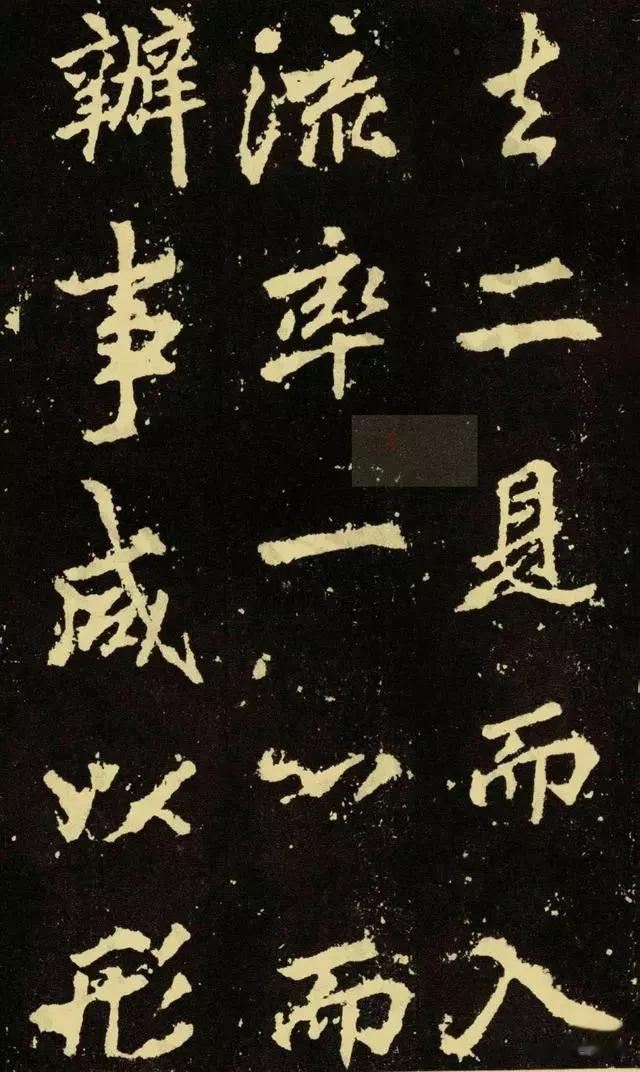 去二見而入
流率一心而
辦事咸以形